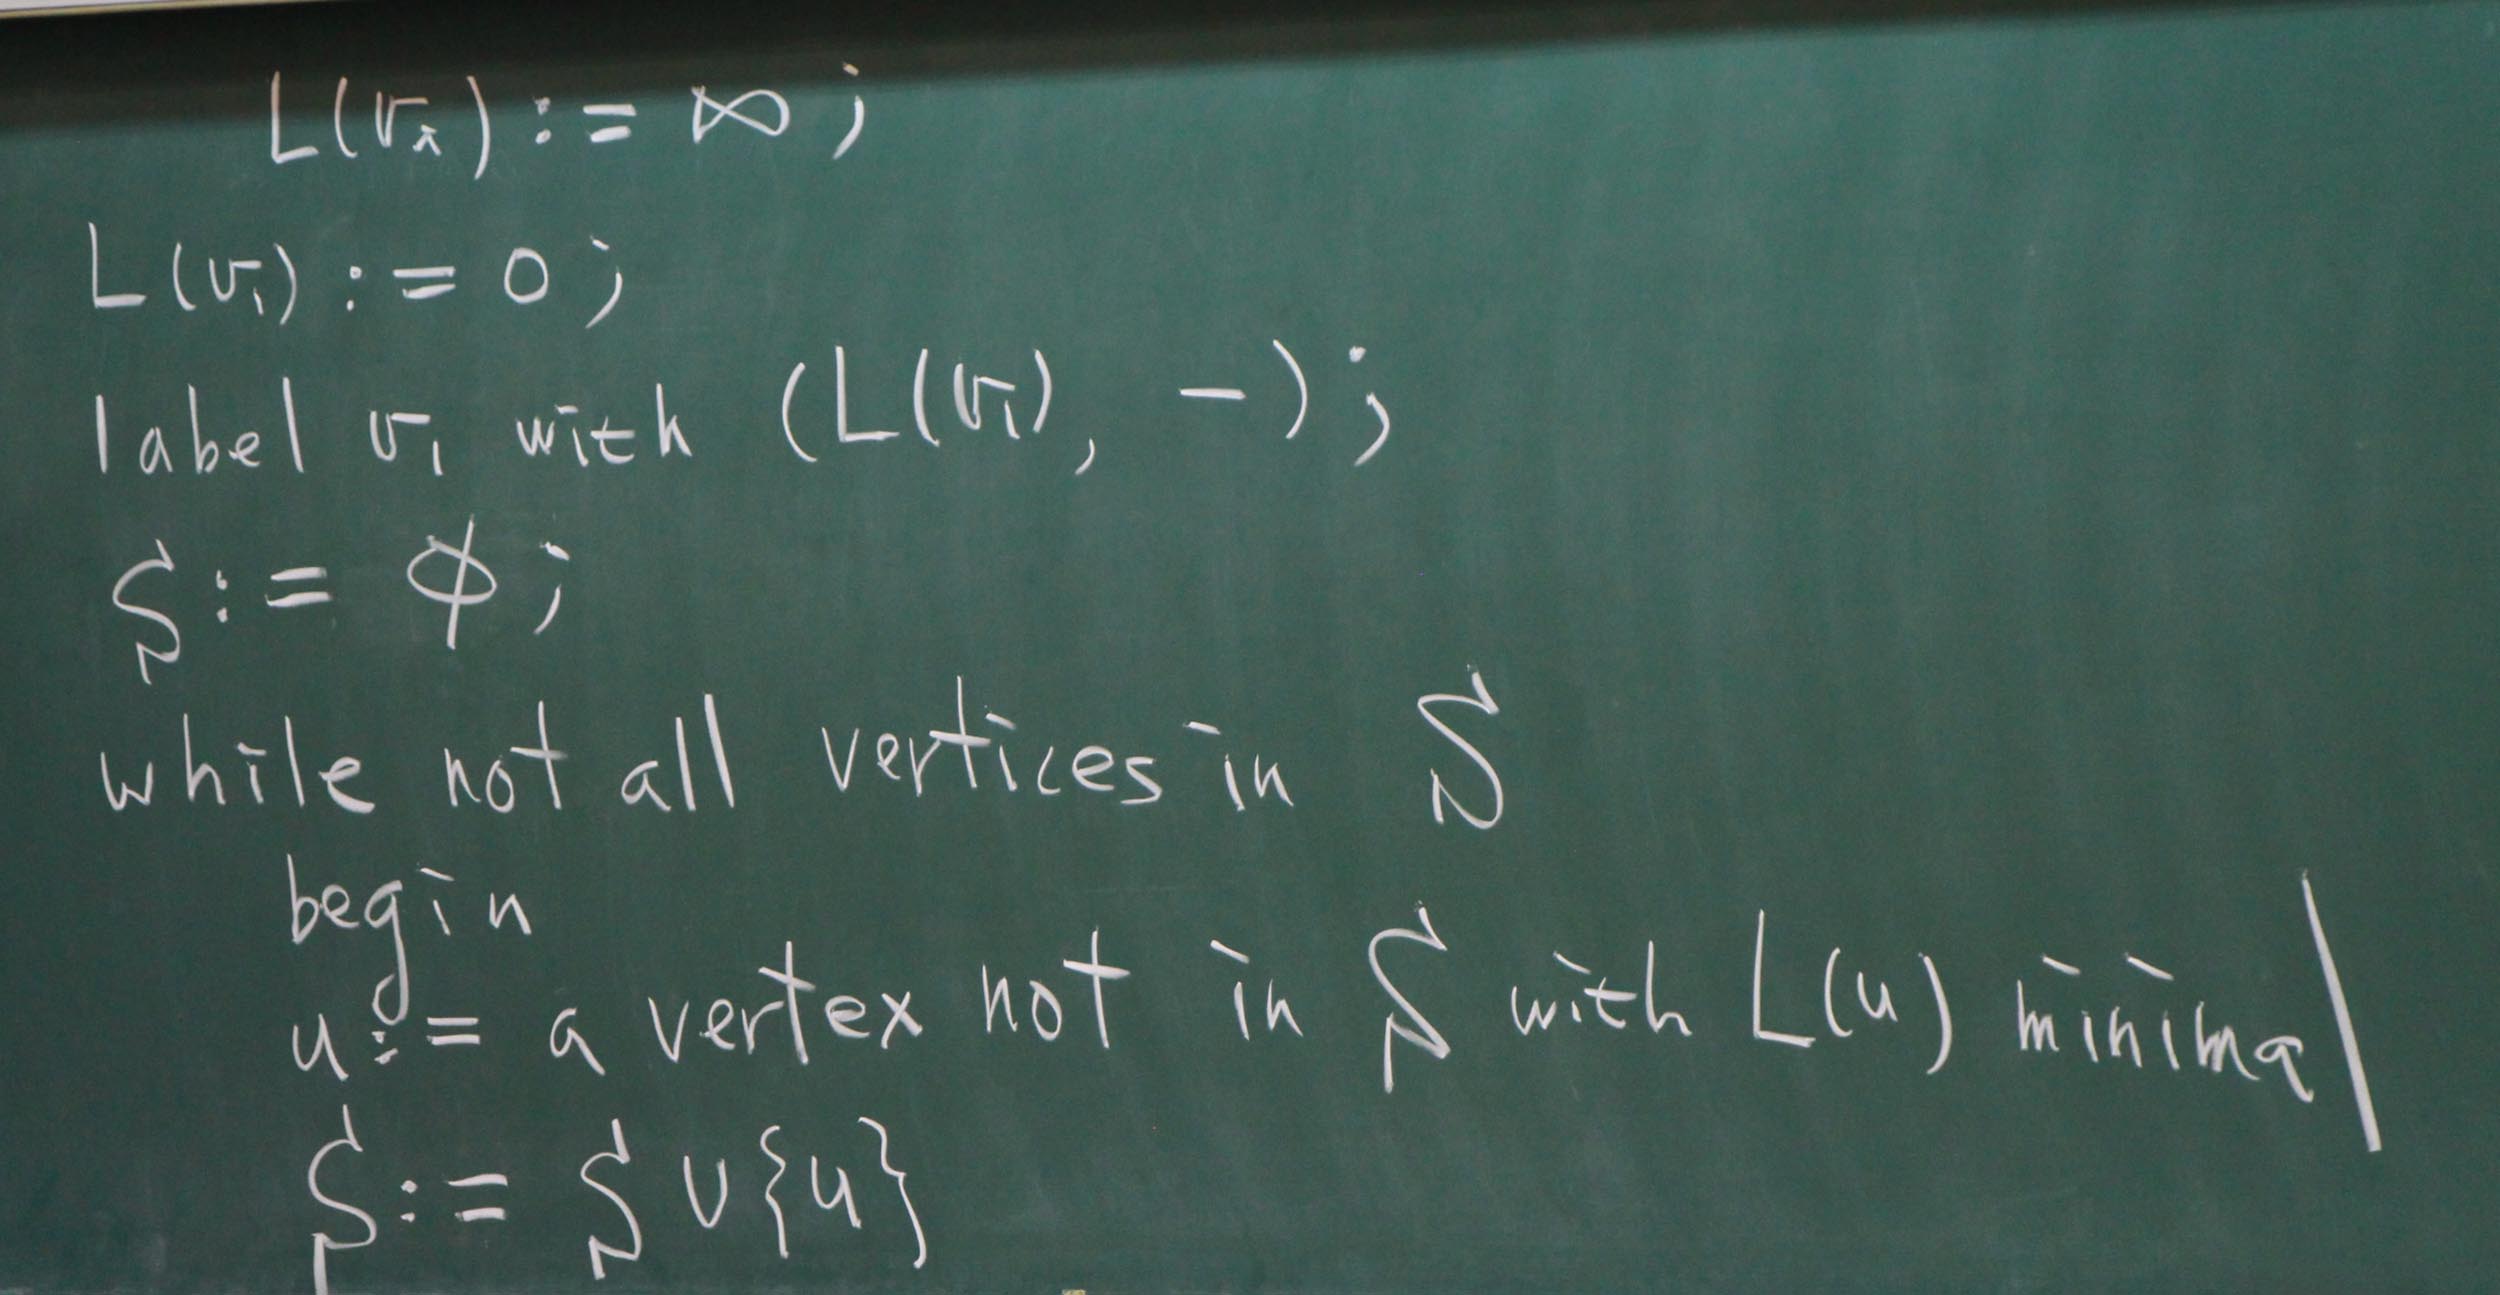 L(vᵢ) := ∞ ;
L(v₁) := 0 ;
label v₁ with (L(v₁), -) ;
S := ϕ ;
while not all vertices in S
begin
u := a vertex not in S with L(u) minimal
S := S ∪ {u}